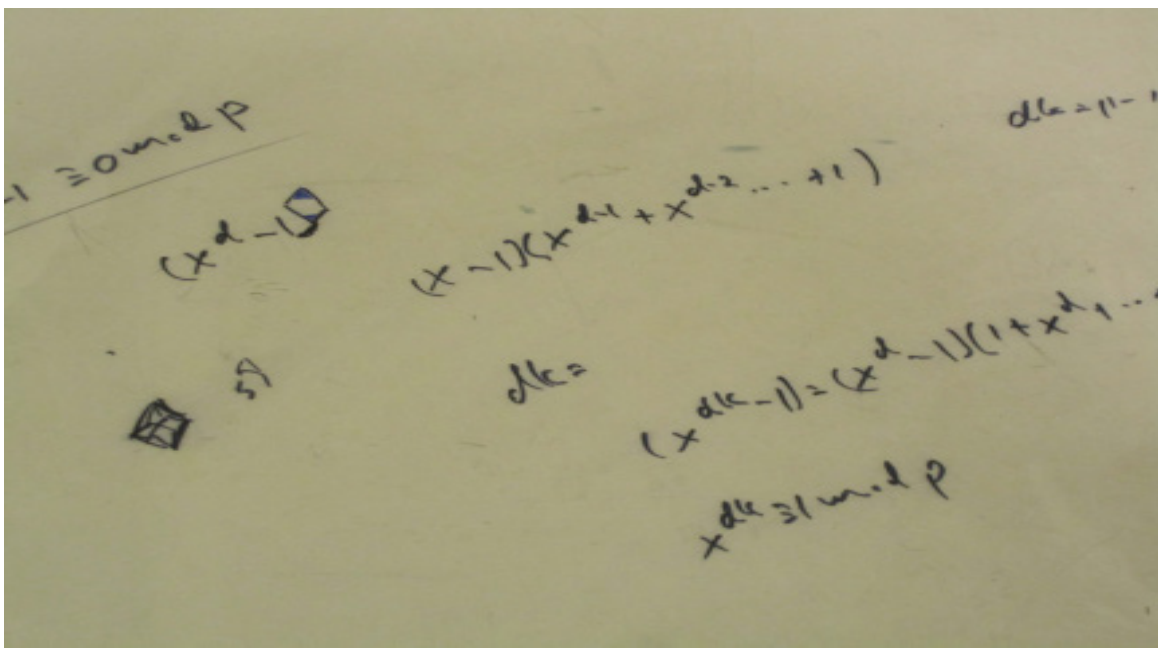 -1 ≡ 0 mod p
dk = p-1
(x^d - 1)
(x-1)(x^{d-1} + x^{d-2} ... + 1)
57
dk =
(x^{dk} - 1) = (x^d - 1)(1 + x^d + ...
x^{dk} ≡ 1 mod p